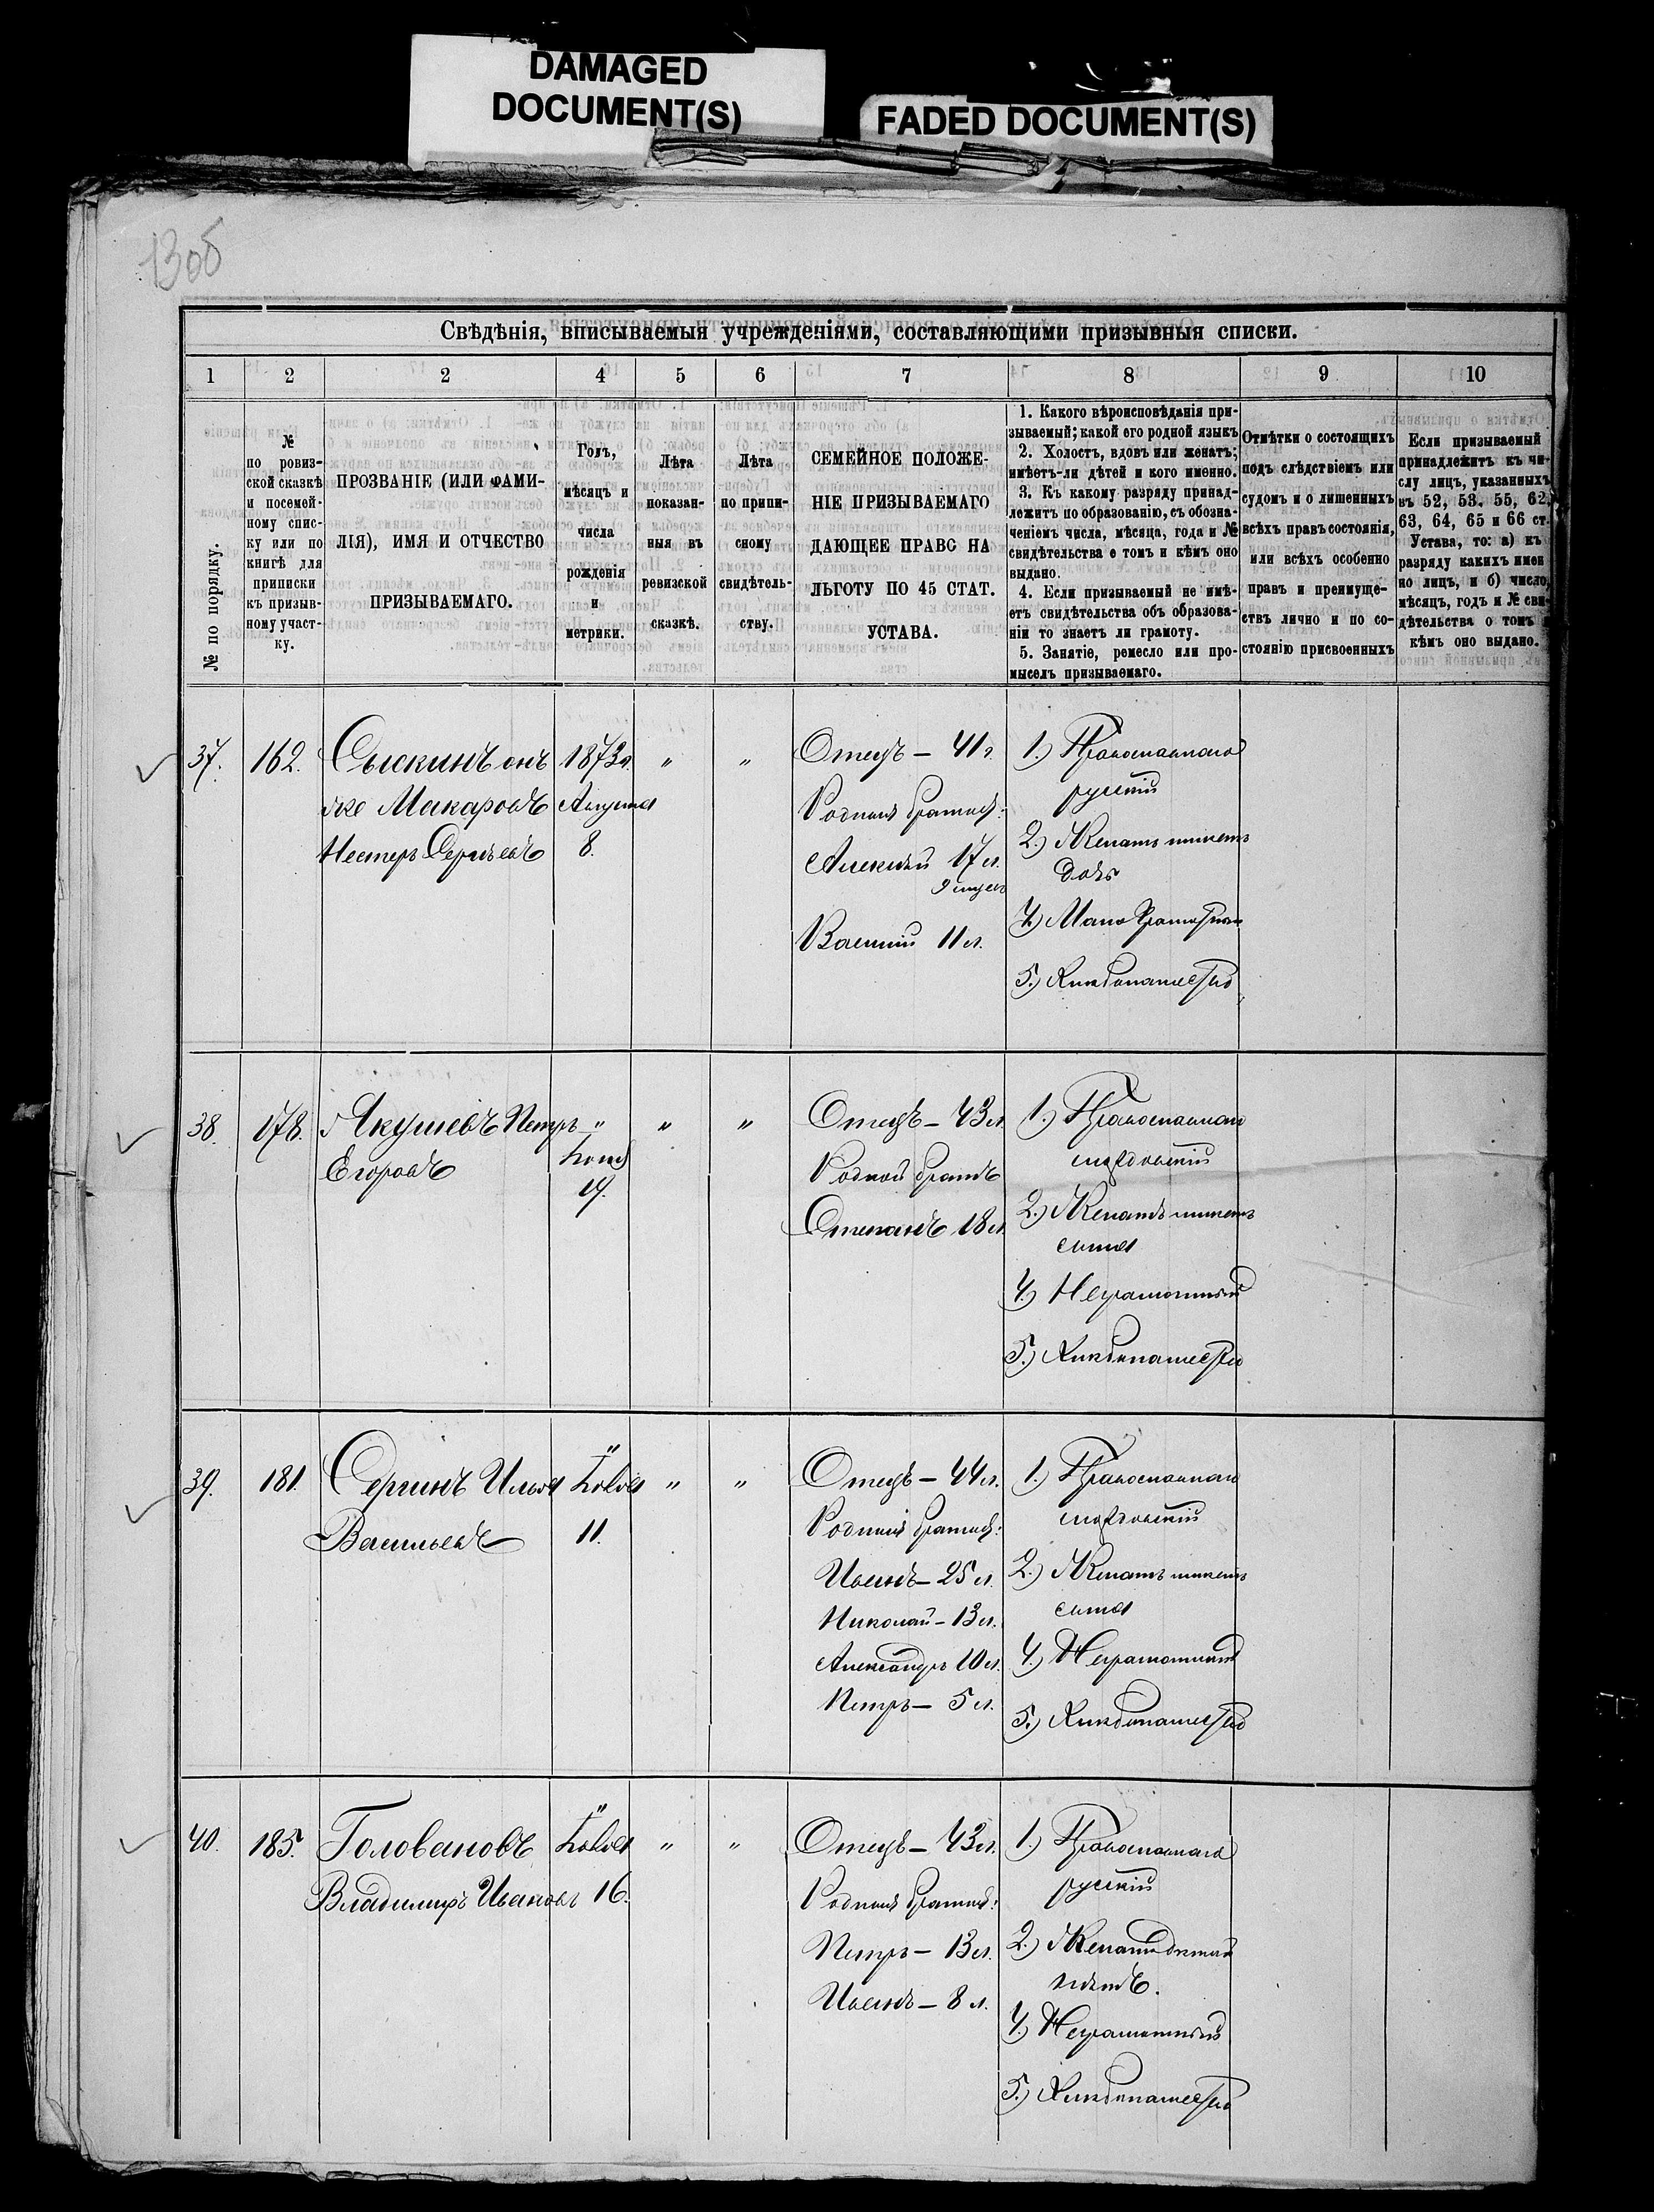 DAMAGED
DOCUMENT(S)
FADED DOCUMENT(S)
130б
Свѣдѣнія, вписываемыя учрежденіями, составляющими призывныя списки.
1 2 2 4 5 6 7 8 9 10
№ по порядку.
№
по ровиз-
ской сказкѣ
и посемей-
ному спис-
ку или по
книгѣ для
приписки
къ призыв-
ному участ-
ку.
ПРОЗВАНІЕ (ИЛИ ФАМИ-
ЛІЯ), ИМЯ И ОТЧЕСТВО
ПРИЗЫВАЕМАГО.
Годъ,
мѣсяцъ и
числа
рожденія
и
метрики.
Лѣта
показан-
ныя въ
ревизской
сказкѣ.
Лѣта
по припи-
сному
свидѣтель-
ству.
СЕМЕЙНОЕ ПОЛОЖЕ-
НІЕ ПРИЗЫВАЕМАГО
ДАЮЩЕЕ ПРАВО НА
ЛЬГОТУ ПО 45 СТАТ.
УСТАВА.
1. Какого вѣроисповѣданія при-
зываемый; какой его родной языкъ
2. Холостъ, вдовъ или женатъ;
имѣетъ-ли дѣтей и кого именно.
3. Къ какому разряду принад-
лежитъ по образованію, съ обозна-
ченіемъ числа, мѣсяца, года и №
свидѣтельства о томъ и кѣмъ оно
выдано.
4. Если призываемый не имѣ-
етъ свидѣтельства объ образова-
ніи то знаетъ ли грамоту.
5. Занятіе, ремесло или про-
мыселъ призываемаго.
Отмѣтки о состоящихъ
подъ слѣдствіемъ или
судомъ и о лишенныхъ
всѣхъ правъ состоянія,
или всѣхъ особенно
правъ и преимуще-
ствъ лично и по со-
стоянію присвоенныхъ
Если призываемый
принадлежитъ къ чи-
слу лицъ, указанныхъ
въ 52, 53, 55, 62,
63, 64, 65 и 66 ст.
Устава, то: а) къ
разряду какихъ имен
но лицъ, и б) число,
мѣсяцъ, годъ и № сви-
дѣтельства о томъ и
кѣмъ оно выдано.
37. 162.
Сыскинъ онъ
же Макаровъ
Нестеръ Сергѣевъ
1873г.
Августа
8.
" "
Отецъ – 41 г.
Родныя братья:
Алексѣй 17 л.
Василій 11 л.
1.) Православнаго
русскій
2.) Женатъ имѣетъ
дочь
4.) Мало Грамотный
5.) Хлѣбопашество
38. 178.
Якушевъ Петръ
Егоровъ
"
19.
" "
Отецъ – 43 л.
Родной братъ
Степанъ 18 л.
1.) Православнаго
мордовскій
2.) Женатъ имѣетъ
сына
4.) Неграмотный
5.) Хлѣбопашество
39. 181.
Сергинъ Илья
Васильевъ
"
Іюля
11.
" "
Отецъ – 44 л.
Родныя братья:
Иванъ – 25 л.
Николай – 13 л.
Александръ 10 л.
Петръ – 5 л.
1.) Православнаго
мордовскій
2.) Женатъ имѣетъ
сына
4.) Неграмотный
5.) Хлѣбопашество
40. 185.
Головановъ
Владимиръ Ивановъ
"
Іюля
16.
" "
Отецъ – 43 л.
Родныя братья:
Петръ – 13 л.
Иванъ – 8 л.
1.) Православнаго
русскій
2.) Женатъ дѣтей
нѣтъ.
4.) Неграмотный
5.) Хлѣбопашество